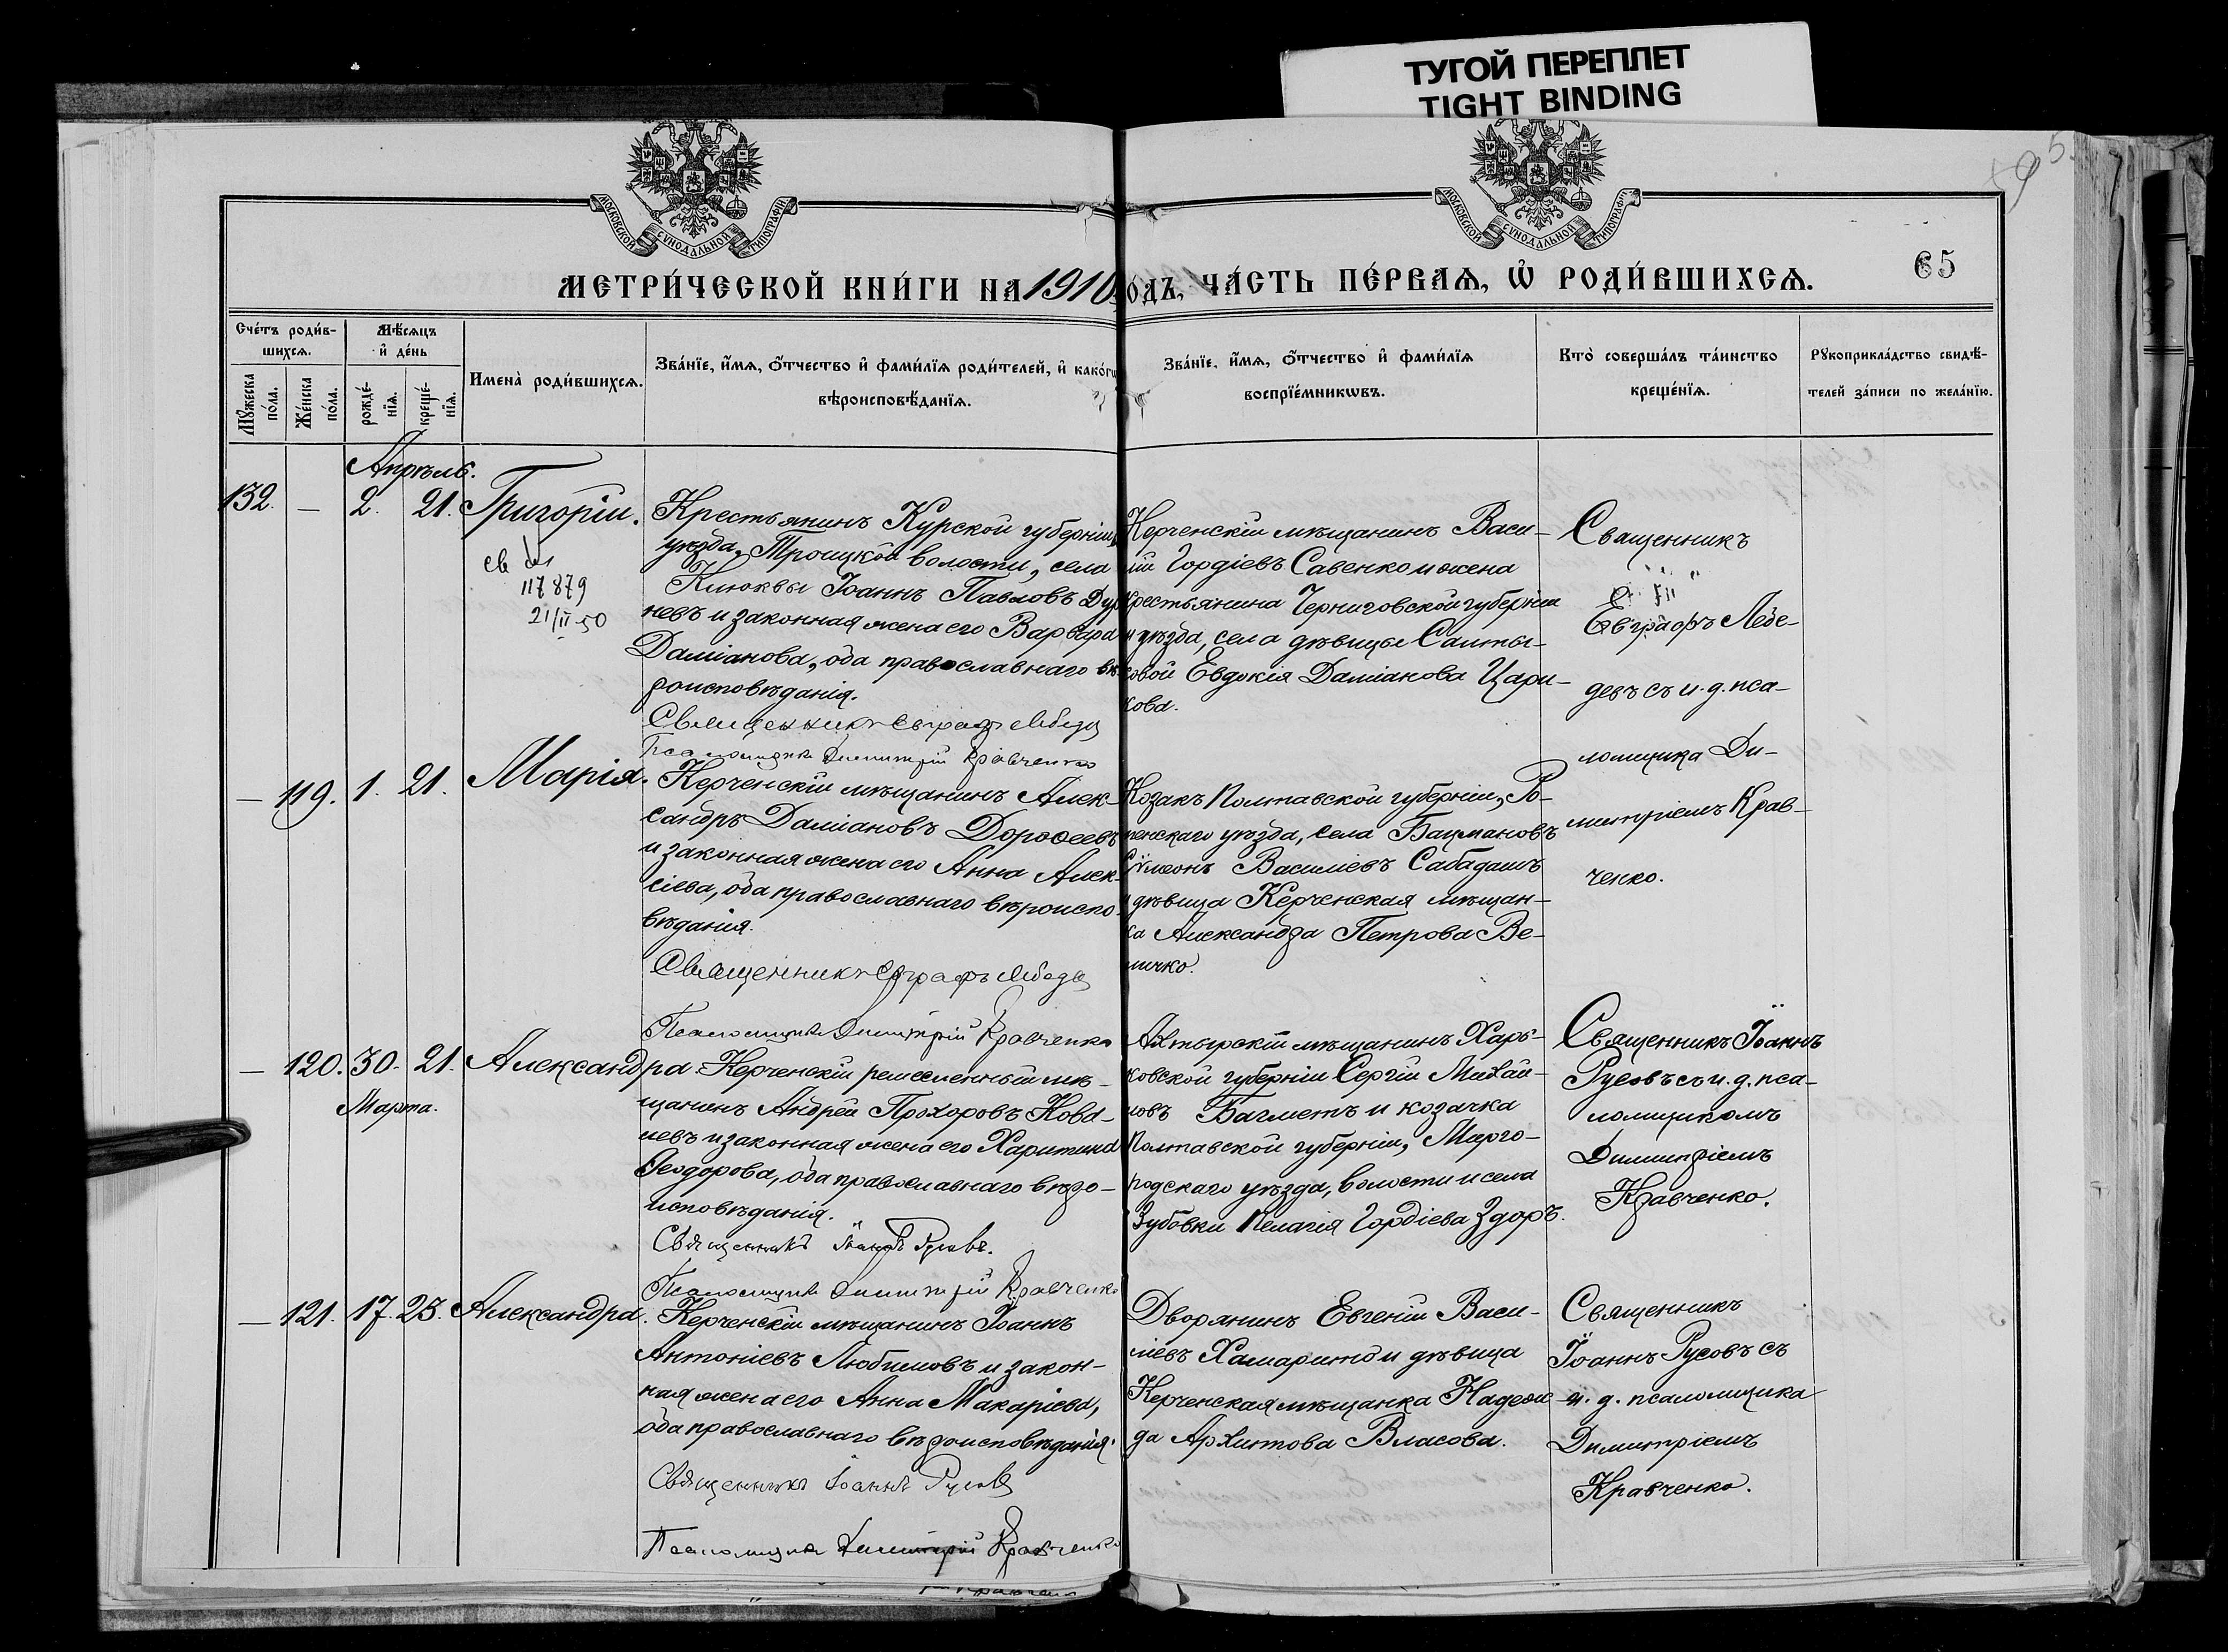 ТУГОЙ ПЕРЕПЛЕТ
TIGHT BINDING
МОСКОВСКОЙ СѴНОДАЛЬНОЙ ТИПОГРАФІИ
МОСКОВСКОЙ СѴНОДАЛЬНОЙ ТИПОГРАФІИ
65
МЕТРИ́ЧЕСКОЙ КНИ́ГИ НА 1910 О́ДЪ, ЧА́СТЬ ПЕ́РВАѦ, Ѡ҆ РОДИ́ВШИХСѦ.
Сче́тъ роди́в-
шихсѧ.
Мꙋ́жеска по́ла.
Же́нска по́ла.
Мѣ́сѧцъ
и҆ де́нь
рожде́-
нїѧ.
креще́-
нїѧ.
Имена̀ роди́вшихсѧ.
Зва́нїе, и҆́мѧ, ѻ҆́тчество и҆ фами́лїѧ роди́телей, и҆ како́гѡ
вѣроисповѣ́данїѧ.
Зва́нїе, и҆́мѧ, ѻ҆́тчество и҆ фами́лїѧ
воспрїе́мникѡвъ.
Кто̀ соверша́лъ та́инство
креще́нїѧ.
Рꙋкоприкла́дство свидѣ́-
телей за́писи по жела́нїю.
Апрѣль.
132. — 2. 21. Григорій.
117879
21/II-50
Крестьянинъ Курской губерніи
уѣзда, Троицкой волости, села
Клюквы Іоаннъ Павловъ
невъ и законная жена его Варвара
Даміанова, оба православнаго вѣ-
роисповѣданія.
Священникъ Евграфъ Лебедев
Псаломщикъ Димитрій Кравченко
Керченскій мѣщанинъ Васи-
лій Гордіевъ Савенко и жена
крестьянина Черниговской губерніи
и уѣзда, села дѣвицы Салты-
ковой Евдокія Даміанова Цари-
кова.
Священникъ
Евграфъ Лебе-
девъ съ и. д. пса-
ломщика Ди-
митріемъ Крав-
ченко.
— 119. 1. 21. Марія.
Керченскій мѣщанинъ Алек-
сандръ Даміановъ Дороѳеевъ
и законная жена его Анна Алек-
сіева, оба православнаго вѣроиспо-
вѣданія.
Священникъ Евграфъ Лебедев
Псаломщикъ Димитрій Кравченко
Козакъ Полтавской губерніи, Ро-
менскаго уѣзда, села Бацмановъ
Сѵмеонъ Василіевъ Сабадашъ
и дѣвица Керченская мѣщан-
ка Александра Петрова Ве-
личко.
— 120. 30. 21. Александра.
Марта.
Керченскій ремесленный мѣ-
щанинъ Андрей Прохоровъ Кова-
левъ и законная жена его Харитина
Ѳеодорова, оба православнаго вѣро-
исповѣданія.
Священникъ Іоаннъ Русовъ.
Псаломщикъ Димитрій Кравченко
Ахтырскій мѣщанинъ Харь-
ковской губерніи Сергій Михай-
ловъ Багметъ и козачка
Полтавской губерніи, Мирго-
родскаго уѣзда, волости и села
Зубовки Пелагія Гордіева Здоръ.
Священникъ Іоаннъ
Русовъ съ и. д. пса-
ломщикомъ
Димитріемъ
Кравченко.
— 121. 17. 23. Александра.
Керченскій мѣщанинъ Іоаннъ
Антоніевъ Любимовъ и закон-
ная жена его Анна Макаріева,
оба православнаго вѣроисповѣданія.
Священникъ Іоаннъ Русовъ
Псаломщикъ Димитрій Кравченко
Дворянинъ Евгеній Васи-
ліевъ Хамарито и дѣвица
Керченская мѣщанка Надеж-
да Архипова Власова.
Священникъ
Іоаннъ Русовъ съ
и. д. псаломщика
Димитріемъ
Кравченко.